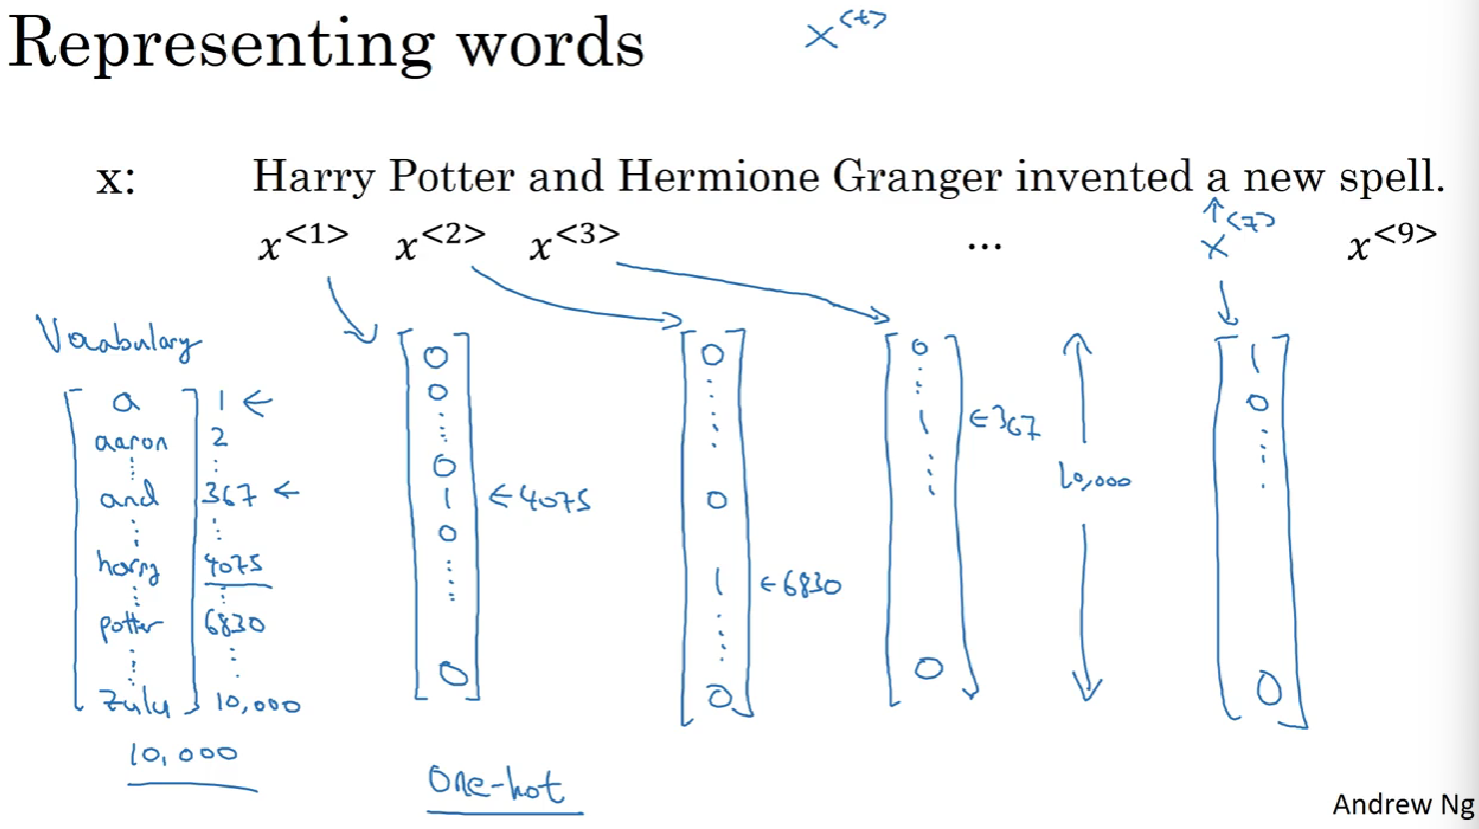 Representing words
x<t>
x: Harry Potter and Hermione Granger invented a new spell.
x<1> x<2> x<3> ... x<7> x<9>
Vocabulary
a 1 ←
aaron 2
⋮ ⋮
and 367 ←
⋮ ⋮
harry 4075
⋮ ⋮
potter 6830
⋮ ⋮
zulu 10,000
10,000
0
0
⋮
0
1 ← 4075
0
⋮
0
0
⋮
0
1 ← 6830
⋮
0
0
⋮
1 ← 367
⋮
0
10,000
1
0
⋮
0
One-hot
Andrew Ng